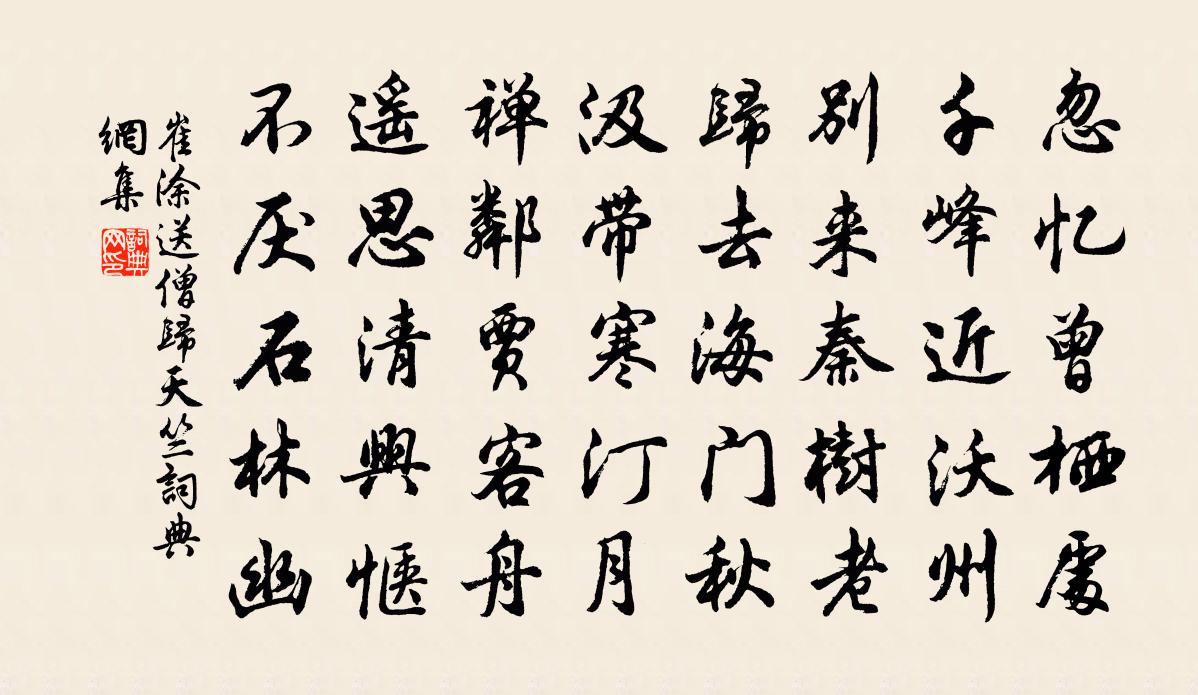 忽忆曾栖處
千峰近沃州
别来秦樹老
歸去海门秋
汲带寒汀月
禅鄰賈客舟
遥思清興惬
不厌石林幽
崔涂送僧歸天竺詞典
網集
詞典
网印